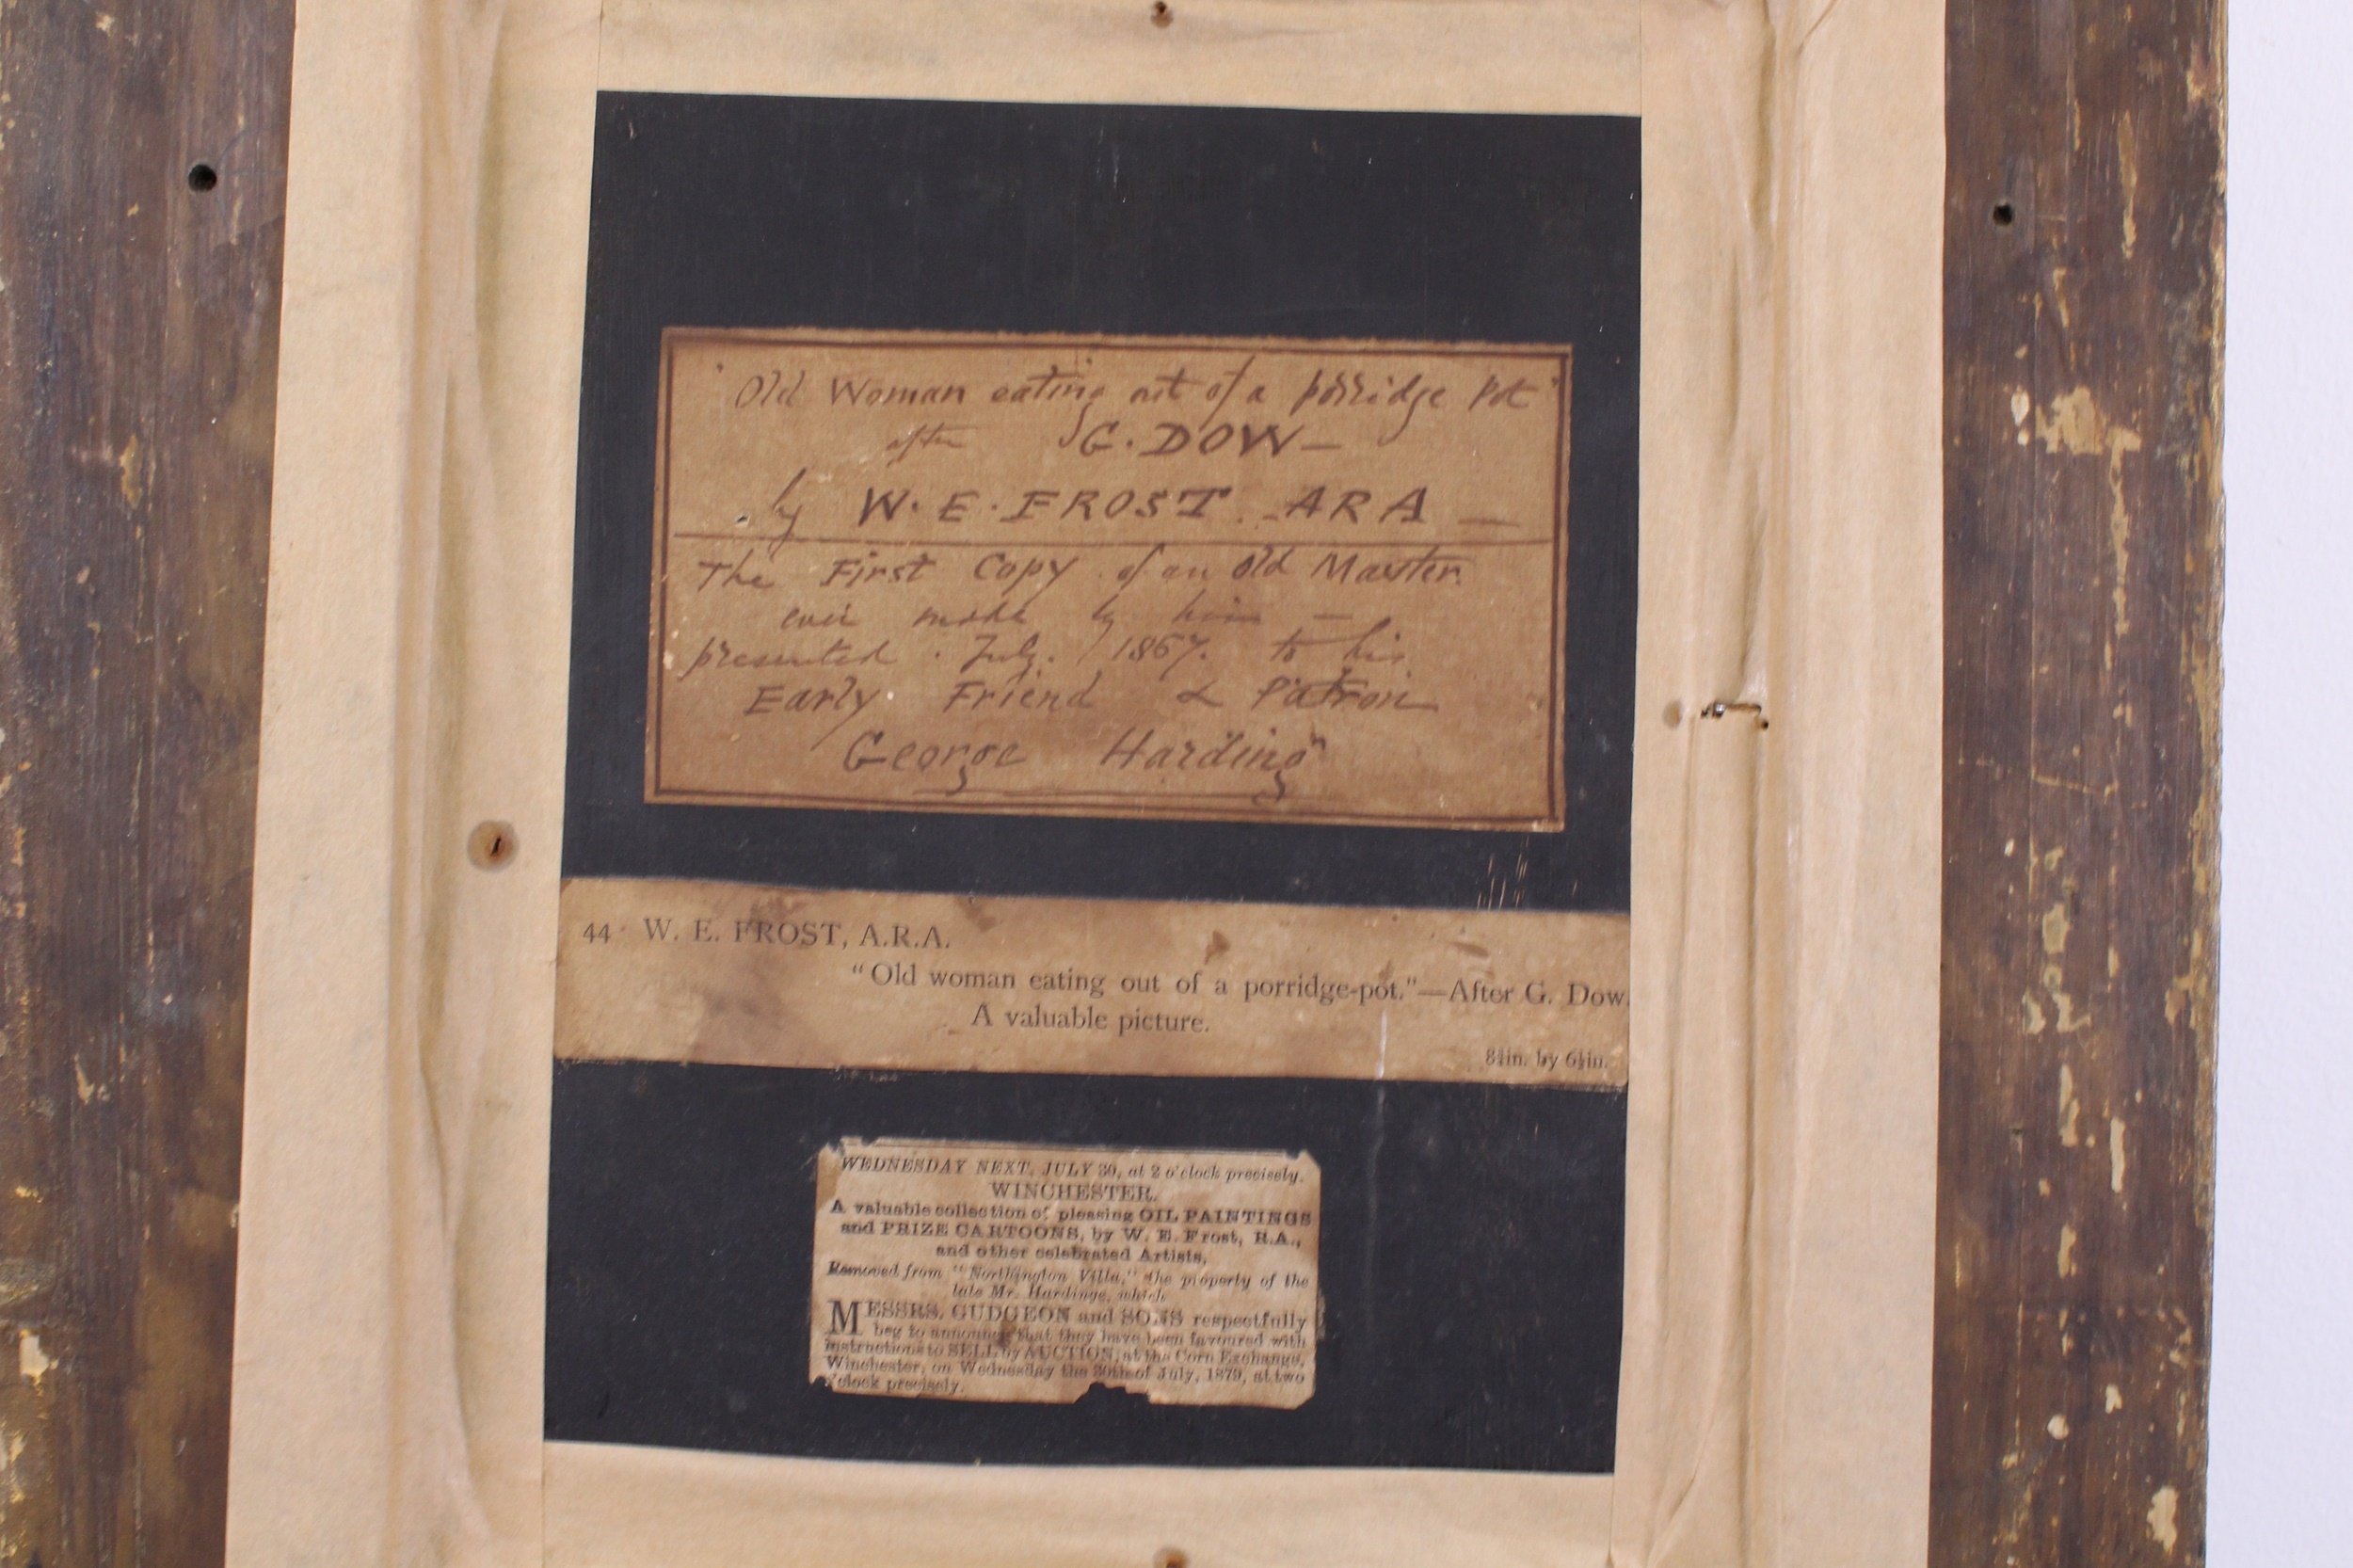 "Old Woman eating out of a porridge Pot"
after G. DOW —
by W. E. FROST. ARA —
The First Copy of an Old Master
ever made by him —
presented . July. 1867. to his
Early Friend & Patron
George Harding
44 W. E. FROST, A.R.A.
“Old woman eating out of a porridge-pot.”—After G. Dow.
A valuable picture.
in. by in.
WEDNESDAY NEXT, JULY 30, at 2 o'clock precisely.
WINCHESTER.
A valuable collection of pleasing OIL PAINTINGS
and PRIZE CARTOONS, by W. E. Frost, R.A.,
and other celebrated Artists,
Removed from "Northington Villa," the property of the
late Mr. Hardinge, which
MESSRS. GUDGEON and SONS respectfully
beg to announce that they have been favoured with
instructions to SELL by AUCTION, at the Corn Exchange,
Winchester, on Wednesday the 30th of July, 1879, at two
o'clock precisely.